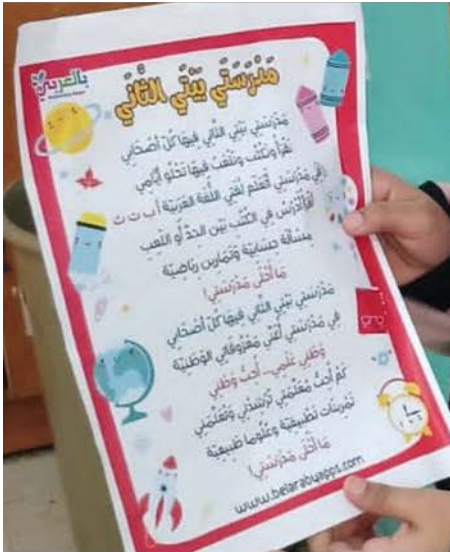 بالعربي
مَدْرَسَتِي بَيْتِي الثَّانِي
مَدْرَسَتِي بَيْتِي الثَّانِي فِيهَا كُلُّ أَصْحَابِي
نَقْرَأُ وَنَكْتُبُ وَنَلْعَبُ فِيهَا تَحْلُو أَيَّامِي
فِي مَدْرَسَتِي أَتَعَلَّمُ لُغَتِي اللُّغَةَ العَرَبِيَّةَ أ ب ت ث
أَقْرَأُ الدَّرْسَ فِي الكُتُبِ بَيْنَ الجِدِّ أَوِ اللَّعِبِ
مَسْأَلَة حِسَابِيَّة وَتَمَارِين رِيَاضِيَّة
مَا أَحْلَى مَدْرَسَتِي!
مَدْرَسَتِي بَيْتِي الثَّانِي فِيهَا كُلُّ أَصْحَابِي
فِي مَدْرَسَتِي أُغَنِّي مَعْزُوفَاتِي الوَطَنِيَّة
وَطَنِي عَلَمِي... أُحِبُّ وَطَنِي
كَمْ أُحِبُّ مُعَلِّمَتِي تُرْشِدُنِي وَتُعَلِّمُنِي
تَدْرِيبَات تَطْبِيقِيَّة وَعُلُومًا طَبِيعِيَّة
مَا أَحْلَى مَدْرَسَتِي!
www.belarabyapps.com